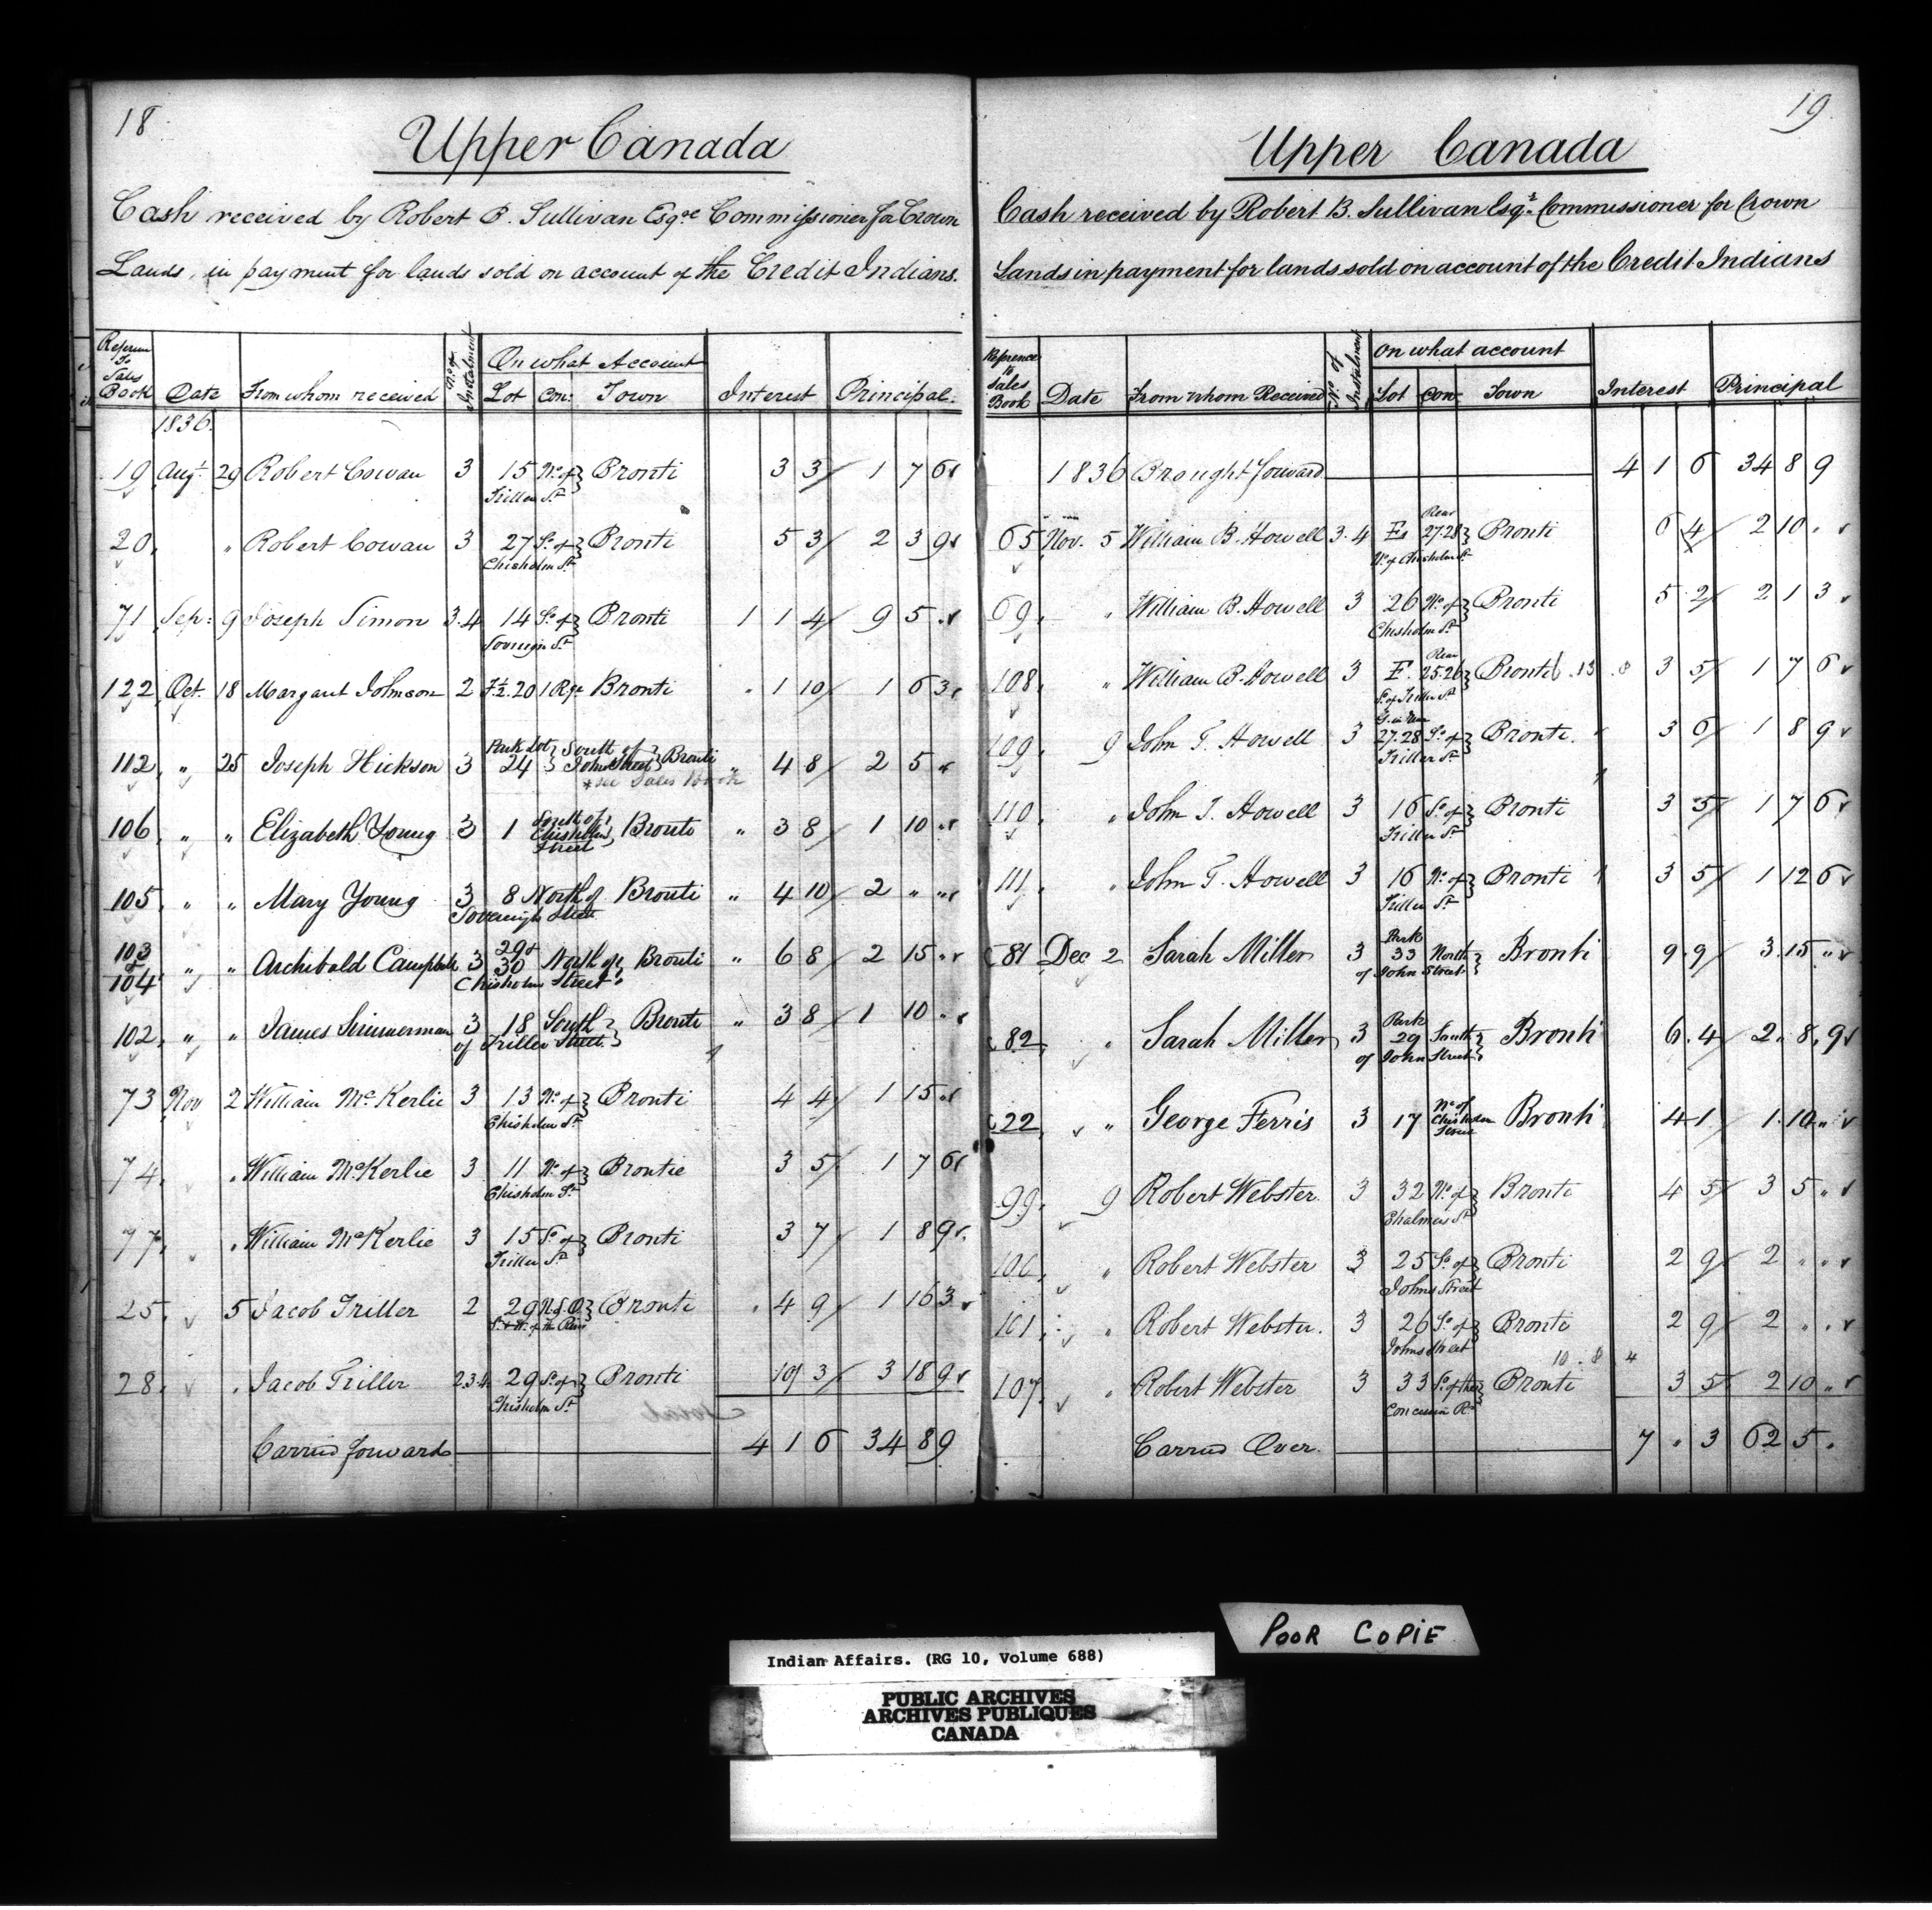 18
Upper Canada
Cash received by Robert B. Sullivan Esqre Commissioner for Crown
Lands, in payment for lands sold on account of the Credit Indians.
On what Account
Book Date From whom received No. of Instalment Lot Con: Town Interest Principal.
1836.
19 Augt 29 Robert Cowan 3 15 No. of } Bronti 3 3 1 7 6
Triller St
20 " Robert Cowan 3 27 So. of } Bronti 5 3 2 3 9
Chisholm St
71 Sep: 9 Joseph Simon 3.4 14 So. of } Bronti 1 1 4 9 5 "
Sovereign St
122 Oct. 18 Margaut Johnson 2 20 1 Rge Bronti " 1 10 1 6 3
Park Lot } South of }
112 " 25 Joseph Hickson 3 24 John Street } Bronti " 4 8 2 5 "
*see Sales Book
South of
106 " " Elizabeth Young 3 1 Chisholm } Bronti " 3 8 1 10 "
Street
105 " " Mary Young 3 8 North of Bronti " 4 10 2 " "
Sovereign Street
103 & 104 " " Archibald Campbell 3 29 & 30 North of Bronti " 6 8 2 15 "
Chisholm Street
102 " " James Simmerman 3 18 South } Bronti " 3 8 1 10 "
of Triller Street }
73 Nov 2 William McKerlie 3 13 No. of } Bronti 4 4 1 15 "
Chisholm St
74 " William McKerlie 3 11 No. of } Brontie 3 5 1 7 6
Chisholm St
77 " William McKerlie 3 15 So. of } Bronti 3 7 1 8 9
Triller St
25 5 Jacob Triller 2 29 } Bronti " 4 9 1 16 3
28 " Jacob Triller 2.3.4 29 So. of } Bronti 10 3 3 18 9
Chisholm St
Carried forward 4 1 6 34 8 9
19
Upper Canada
Cash received by Robert B. Sullivan Esqr. Commissioner for Crown
Lands in payment for lands sold on account of the Credit Indians
On what account
Reference to Sales Book Date From whom Received No. of Instalment Lot Con Town Interest Principal
1836 Brought forward 4 1 6 34 8 9
Rear
65 Nov. 5 William B. Howell 3.4 27.28 } Bronti 6 4 2 10 "
No. of Chisholm St
69 " William B. Howell 3 26 No. of } Bronti 5 2 2 1 3
Chisholm St
Rear
108 " William B. Howell 3 E. 25.26 } Bronti 3 5 1 7 6
S. of Triller St
109 9 John T. Howell 3 27.28 So. of } Bronti 3 6 1 8 9
Triller St
110 " John T. Howell 3 16 So. of } Bronti 3 5 1 7 6
Triller St
111 " John T. Howell 3 16 No. of } Bronti 3 5 1 12 6
Triller St
Park
81 Dec 2 Sarah Miller 3 33 North } Bronti 9 9 3 15 "
of John Street
Park
82 " Sarah Miller 3 29 South } Bronti 6 4 2 8 9
of John Street
No of
22 " George Ferris 3 17 Chisholm Bronti 4 1 1 10 "
99 9 Robert Webster 3 32 No. of } Bronti 4 5 3 5 "
Chalmers St
100 " Robert Webster 3 25 So. of } Bronti 2 9 2 " "
Johns Street
101 " Robert Webster. 3 26 So. of } Bronti 2 9 2 " "
Johns Street
107 " Robert Webster 3 33 S. of the } Bronti 3 5 2 10 "
Concession Rd
Carried Over 7 " 3 62 5 "
POOR COPIE
Indian Affairs. (RG 10, Volume 688)
PUBLIC ARCHIVES
ARCHIVES PUBLIQUES
CANADA